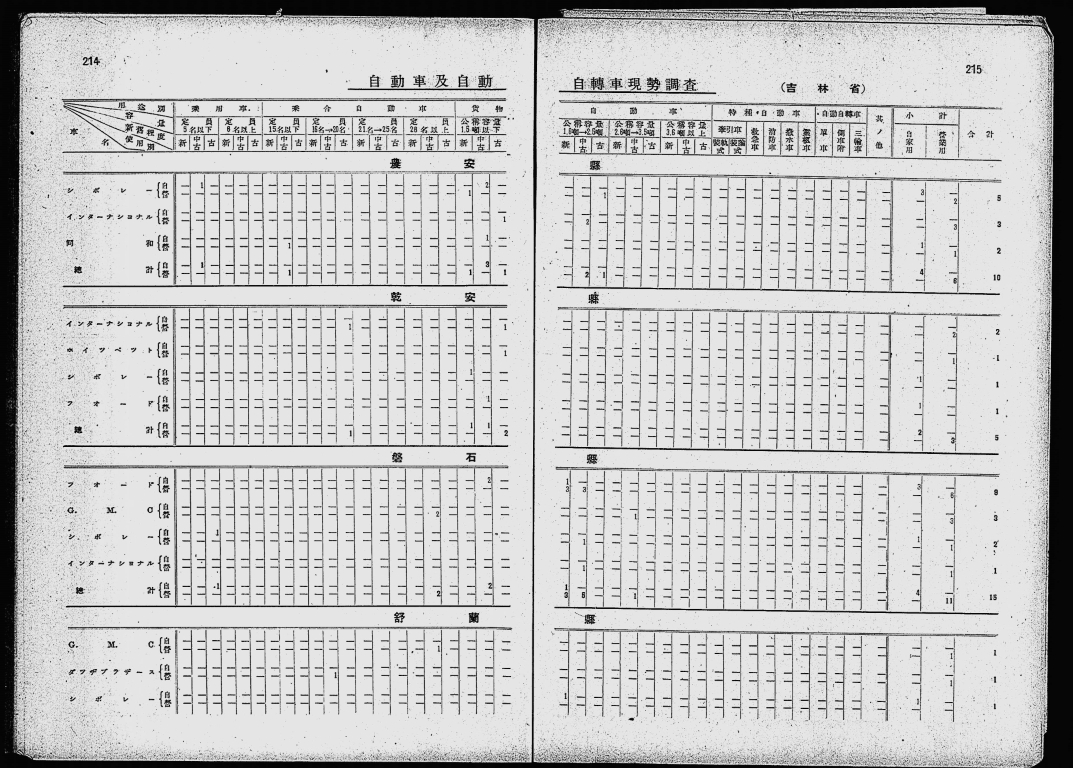 214
自動車及自動
用途別
容量
新舊程度
使用別
車名
乗用車 乗合自動車 貨物
定員5名以下 定員6名以上 定員15名以下 定員16名→20名 定員21名→25名 定員26名以上 公稱容量1.5噸以下
新 中古 古 新 中古 古 新 中古 古 新 中古 古 新 中古 古 新 中古 古 新 中古 古
農安
シボレー{自營 1 2 1
インターナショナル{自營 1
同和{自營 1 1
總計{自營 1 3 1 1 1
乾安
インターナショナル{自營 1 1
ホイツペツト{自營 1
シボレー{自營 1
フオード{自營 1
總計{自營 1 1 1 2
磐石
フオード{自營 2
G. M. C{自營 2
シボレー{自營 1
インターナショナル{自營
總計{自營 1 2 2
舒蘭
G. M. C{自營 1
ダツヂブラザース{自營 1
シボレー{自營
215
自轉車現勢調査 (吉林省)
自動車 特種自動車 自動自轉車 其ノ他 小計 合計
公稱容量1.6噸→2.5噸 公稱容量2.6噸→3.5噸 公稱容量3.6噸以上 牽引車 救急車 消防車 撒水車 單車 側車附 三輪車 自家用 營業用
新 中古 古 新 中古 古 新 中古 古
縣
1 3 2 5
2 3 3
1 1 2
2 1 4 6 10
縣
2 2
1 1
1 1
1 1
2 3 5
縣
1 3 3 3 6 9
1 3 3
1 1 1 2
1 1 1
1 3 5 1 4 11 15
縣
1 1
1 1
1 1 1